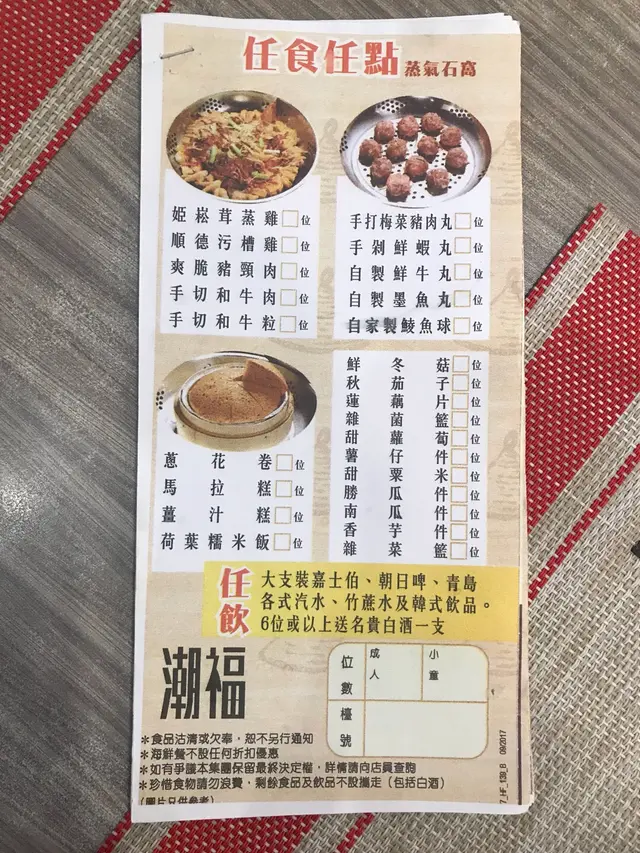 任食任點 蒸氣石窩
姬崧茸蒸雞 位
順德污槽雞 位
爽脆豬頸肉 位
手切和牛肉 位
手切和牛粒 位
手打梅菜豬肉丸 位
手剁鮮蝦丸 位
自製鮮牛丸 位
自製墨魚丸 位
自家製鯪魚球 位
蔥花卷 位
馬拉糕 位
薑汁糕 位
荷葉糯米飯 位
鮮冬菇 位
秋茄子 位
蓮藕片 位
雜菌籃 位
甜蘿蔔 位
薯仔件 位
甜粟米 位
勝瓜件 位
南瓜件 位
香芋件 位
雜菜籃 位
任飲
大支裝嘉士伯、朝日啤、青島
各式汽水、竹蔗水及韓式飲品。
6位或以上送名貴白酒一支
潮福
位數 成人 小童
檯號
*食品沽清或欠奉，恕不另行通知
*海鮮餐不設任何折扣優惠
*如有爭議本集團保留最終決定權，詳情請向店員查詢
*珍惜食物請勿浪費，剩餘食品及飲品不設攜走（包括白酒）
(圖片只供參考)
7_HF_139_B 09/2017